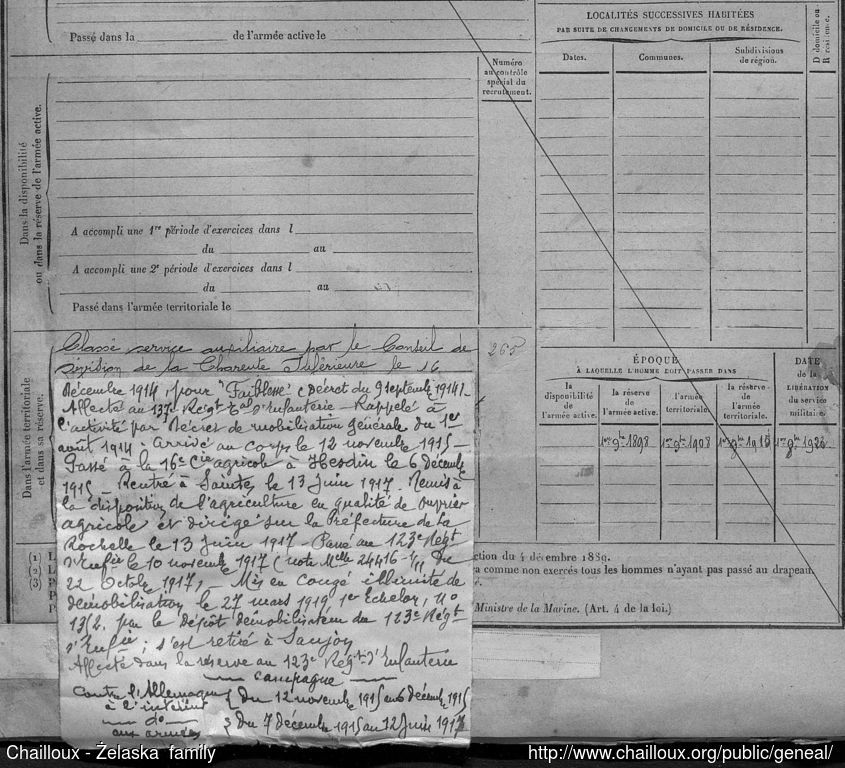 Passé dans la de l'armée active le
Dans la disponibilité
ou dans la réserve de l'armée active.
Numéro
au contrôle
spécial du
recrutement.
A accompli une 1re période d'exercices dans l
du au
A accompli une 2e période d'exercices dans l
du au
Passé dans l'armée territoriale le
LOCALITÉS SUCCESSIVES HABITÉES
PAR SUITE DE CHANGEMENTS DE DOMICILE OU DE RÉSIDENCE.
Dates.
Communes.
Subdivisions
de région.
D domicile ou
R résidence.
Dans l'armée territoriale
et dans sa réserve.
Classé service auxiliaire par le Conseil de
révision de la Charente Inférieure le 16
265
décembre 1914, pour "Faiblesse" (Décret du 9 septembre 1914).
Affecté au 137e Régt Tal d'Infanterie - Rappelé à
l'activité par Décret de mobilisation générale du 1er
août 1914 - Arrivé au corps le 12 novembre 1915 -
Passé à la 16e Cie agricole à Hesdin le 6 décembre
1915 - Rentré à Saintes le 13 Juin 1917. Remis à
la disposition de l'agriculture en qualité de ouvrier
agricole et dirigé sur la Préfecture de La
Rochelle le 13 Juin 1917 - Passé au 123e Régt
d'Infie le 10 novembre 1917 (note Mlle 24416-1/11 du
22 Octobre 1917) - Mis en congé illimité de
démobilisation le 27 mars 1919 1er Echelon, No
1312. par le dépôt démobilisateur du 123e Régt
d'Infie ; s'est retiré à Saujon
Affecté dans la réserve au 123e Régt d'Infanterie
Campagne
Contre l'Allemagne
à l'intérieur { du 12 novembre 1915 au 6 décembre 1915
do
aux armées } du 7 décembre 1915 au 12 Juin 1917
ÉPOQUE
À LAQUELLE L'HOMME DOIT PASSER DANS
la
disponibilité
de
l'armée active.
la réserve
de
l'armée active.
l'armée
territoriale.
la réserve
de
l'armée
territoriale.
DATE
de la
LIBÉRATION
du service
militaire.
1er 9bre 1898
1er 9bre 1908
1er 9bre 1918
1er 9bre 1920
(1) L
(2) L
(3) P
P
ction du 4 décembre 1889.
ra comme non exercés tous les hommes n'ayant pas passé au drapeau
Ministre de la Marine. (Art. 4 de la loi.)
Chailloux - Żelaska family
http://www.chailloux.org/public/geneal/